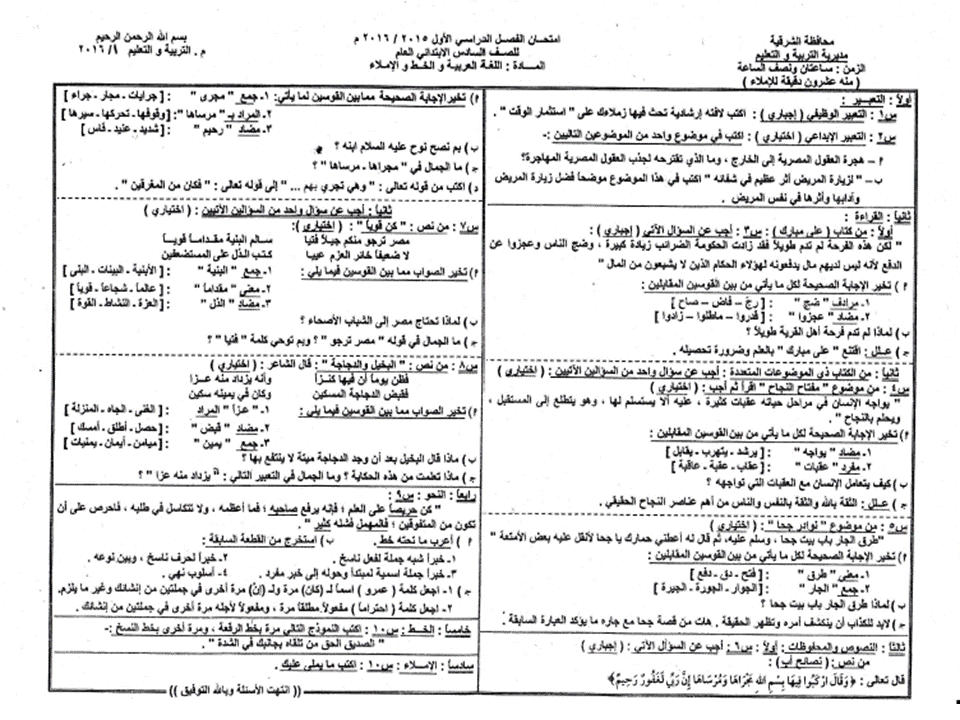 محافظة الشرقية
مديرية التربية و التعليم
الزمن : ساعتان ونصف الساعة
( منه عشرون دقيقة للإملاء )
امتحان الفصل الدراسي الأول ٢٠١٥ / ٢٠١٦ م
للصف السادس الابتدائي العام
المــادة : اللغة العربية و الخط و الإملاء
بسم الله الرحمن الرحيم
م . التربية و التعليم ١/ ٢٠١٦
أولاً : التعبـــير :
س١ : التعبير الوظيفي ( إجباري ) : اكتب لافتة إرشادية تحث فيها زملاءك على " استثمار الوقت " .
س٢ : التعبير الإبداعي ( اختياري ) : اكتب في موضوع واحد من الموضوعين التاليين :-
أ – هجرة العقول المصرية إلى الخارج ، وما الذي تقترحه لجذب العقول المصرية المهاجرة؟
ب – " لزيارة المريض أثر عظيم في شفائه " اكتب في هذا الموضوع موضحاً فضل زيارة المريض
وآدابها وأثرها في نفس المريض .
ثانياً : القراءة :
أولاً : من كتاب ( على مبارك ) : س٣ : أجب عن السؤال الآتي ( إجباري ) :
" لكن هذه الفرحة لم تدم طويلاً فقد زادت الحكومة الضرائب زيادة كبيرة ، وضج الناس وعجزوا عن
الدفع لأنه ليس لديهم مال يدفعونه لهؤلاء الحكام الذين لا يشبعون من المال "
أ ) تخير الإجابة الصحيحة لكل ما يأتي من بين القوسين المقابلين :
١- مرادف " ضج " : [ رجّ – فاض – صاح ]
٢- مضاد " عجزوا " : [ قدروا – ماطلوا – زادوا ]
ب) لماذا لم تدم فرحة أهل القرية طويلاً ؟
ج) علــل : اقتنع " على مبارك " بالعلم وضرورة تحصيله .
ثانياً : من الكتاب ذي الموضوعات المتعددة : أجب عن سؤال واحد من السؤالين الآتيين : ( اختياري )
س٤ : من موضوع " مفتاح النجاح " اقرأ ثم أجب : ( اختياري )
" يواجه الإنسان في مراحل حياته عقبات كثيرة ، عليه ألا يستسلم لها ، وهو يتطلع إلى المستقبل ،
ويحلم بالنجاح " .
أ) تخير الإجابة الصحيحة لكل ما يأتي من بين القوسين المقابلين :
١- مضاد " يواجه " : [ يرشد - يتهرب - يقابل ]
٢- مفرد " عقبات " : [ عقاب - عقبة - عاقبة ]
ب) كيف يتعامل الإنسان مع العقبات التي تواجهه ؟
ج) علــل : الثقة بالله والثقة بالنفس والناس من أهم عناصر النجاح الحقيقي .
س٥ : من موضوع " نوادر جحا " : ( اختياري )
"طرق الجار باب بيت جحا ، وسلم عليه، ثم قال له أعطني حمارك يا جحا لأنقل عليه بعض الأمتعة "
أ) تخير الإجابة الصحيحة لكل ما يأتي من بين القوسين المقابلين :
١- معنى " طرق " : [ فتح - دق - دفع ]
٢- جمع " الجار " : [ الجوار - الجورة - الجيرة ]
ب) لماذا طرق الجار باب بيت جحا ؟
ج) لابد للكذاب أن ينكشف أمره وتظهر الحقيقة . هات من قصة جحا مع جاره ما يؤكد العبارة السابقة .
ثالثاً : النصوص والمحفوظات : أولاً : س٦ : أجب عن السؤال الآتي : ( إجباري )
من نص : ( نصائح أب ) :
قال تعالى : ﴿وَقَالَ ارْكَبُوا فِيهَا بِسْمِ اللَّهِ مَجْرَاهَا وَمُرْسَاهَا إِنَّ رَبِّي لَغَفُورٌ رَحِيمٌ﴾
أ) تخير الإجابة الصحيحة مما بين القوسين لما يأتي: ١- جمع " مجرى " : [ جرايات - مجار - جراء ]
٢- المراد بـ " مرساها ": [ وقوفها - تحركها - سيرها ]
٣- مضاد " رحيم " : [ شديد - عنيد - قاس ]
ب) بم نصح نوح عليه السلام ابنه ؟
ج) ما الجمال في " مجراها - مرساها " ؟
د) اكتب من قوله تعالى : " وهي تجري بهم ... " إلى قوله تعالى : " فكان من المغرقين " .
ثانياً : أجب عن سؤال واحد من السؤالين الآتيين : ( اختياري )
س٧ : من نص : " كن قوياً " : ( اختياري ) :
مصر ترجو منكم جيلاً فتيا سالم البنية مقداماً قويــاً
لا ضعيفاً خائر العزم عييا كتب الذل على المستضعفين
أ) تخير الصواب مما بين القوسين فيما يلي : ١- جمع " البنية " : [ الأبنية - البينات - البنى ]
٢- معنى " مقداماً " : [ عالماً - شجاعاً - قوياً ]
٣- مضاد " الذل " : [ العزة - النشاط - القوة ]
ب) لماذا تحتاج مصر إلى الشباب الأصحاء ؟
ج) ما الجمال في قوله " مصر ترجو " ؟ وبم توحي كلمة " فتيا " ؟
س٨ : من نص : " البخيل والدجاجة " : قال الشاعر : ( اختياري )
فظن يوماً أن فيها كنــزاً وأنه يزداد منه عــزا
فقبض الدجاجة المسكين وكان في يمينه سكين
أ) تخير الصواب مما بين القوسين فيما يلي : ١- " عزاً " المراد : [ الغنى - الجاه - المنزلة ]
٢- مضاد " قبض " : [ حصل - أطلق - أمسك ]
٣- جمع " يمين " : [ ميامن - أيمان - يمنيات ]
ب) ماذا قال البخيل بعد أن وجد الدجاجة ميتة لا ينتفع بها ؟
ج) ماذا تعلمت من هذه الحكاية ؟ وما الجمال في التعبير التالي : " يزداد منه عزا " ؟
رابعاً : النحو : س٩ :
" كن حريصاً على العلم ؛ فإنه يرفع صاحبه ؛ فما أعظمه ، ولا تتكاسل في طلبه ، فاحرص على أن
تكون من المتفوقين ؛ فالمهمل فشله كثير " .
أ ) أعرب ما تحته خط . ب) استخرج من القطعة السابقة :
١- خبراً شبه جملة لفعل ناسخ . ٢- خبراً لحرف ناسخ ، وبين نوعه .
٣- خبراً جملة اسمية لمبتدأ وحوله إلى خبر مفرد . ٤- أسلوب نهي .
ج ) ١- اجعل كلمة ( عمرو ) اسماً لـ (كان) مرة ولـ (إن) مرة أخرى في جملتين من إنشائك وغير ما يلزم.
٢- اجعل كلمة ( احتراماً ) مفعولاً مطلقاً مرة ، ومفعولاً لأجله مرة أخرى في جملتين من إنشائك .
خامساً : الخط : س١٠ : اكتب النموذج التالي مرة بخط الرقعة ، ومرة أخرى بخط النسخ :-
" الصديق الحق من تلقاه بجانبك في الشدة " .
سادساً : الإملاء : س١٠ : اكتب ما يملى عليك .
(( انتهت الأسئلة وبالله التوفيق ))